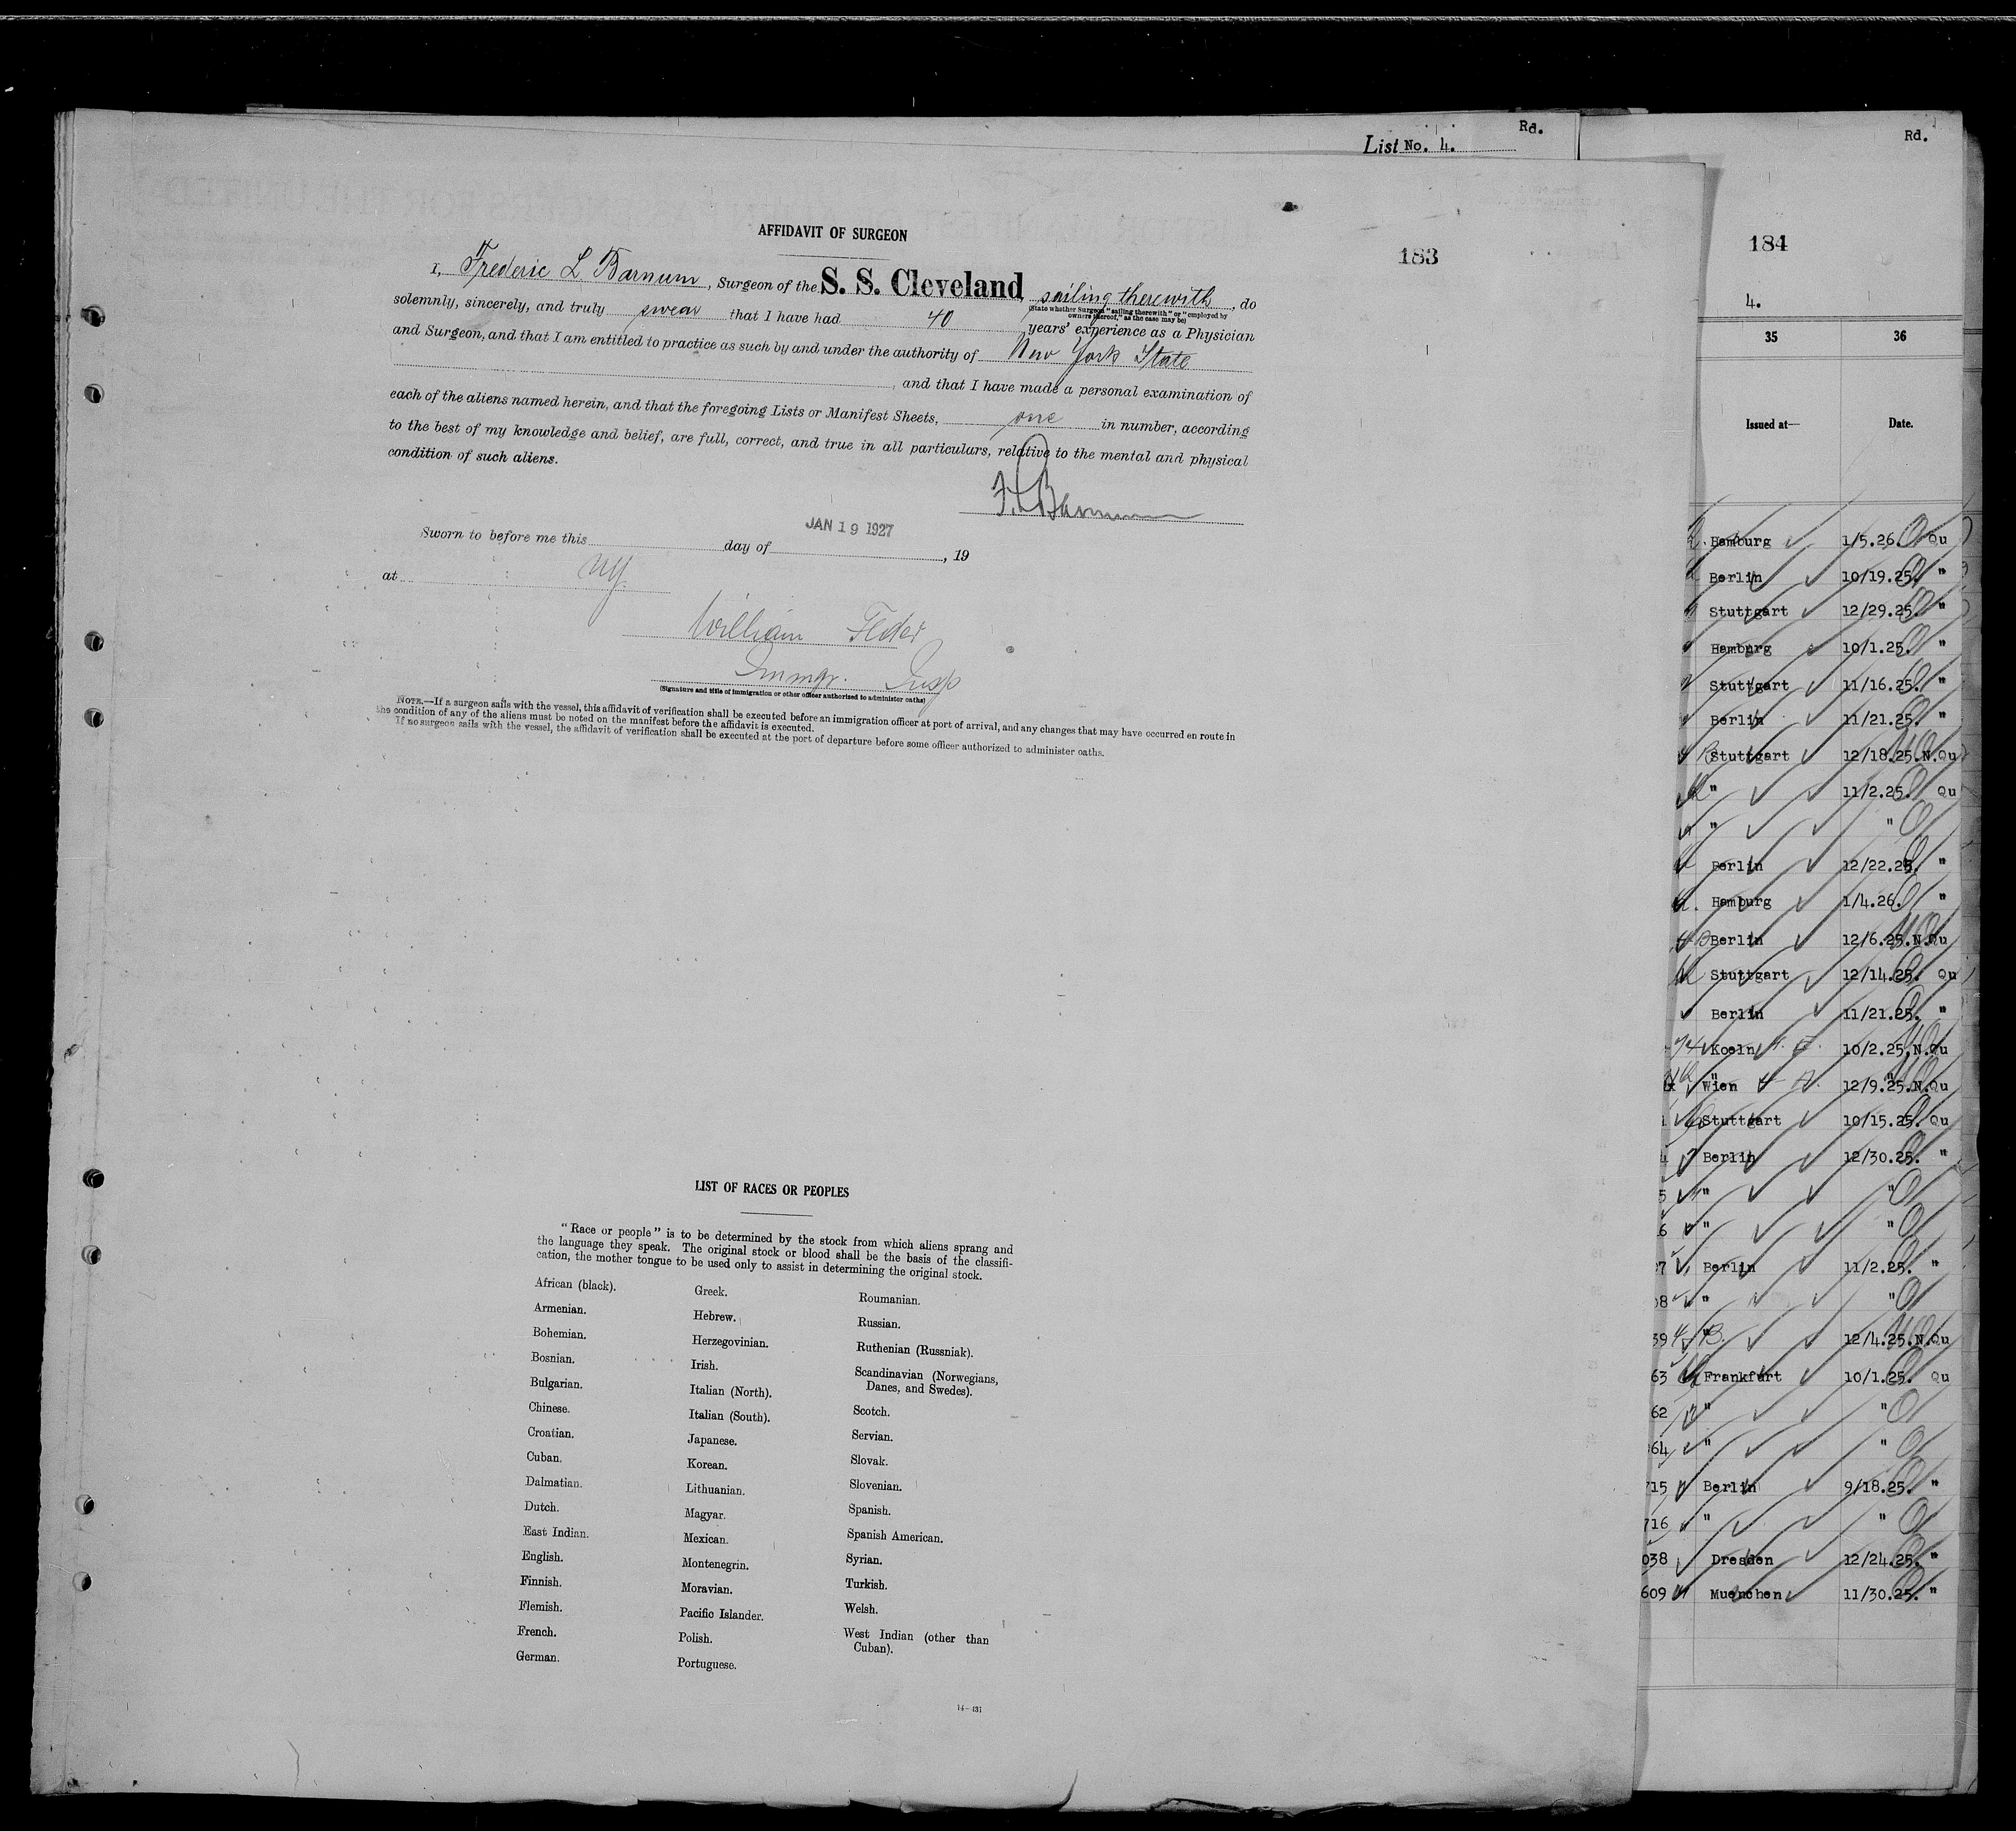 Rd.
List No. 4.
183
AFFIDAVIT OF SURGEON
I, Frederic L Barnum, Surgeon of the S. S. Cleveland, sailing therewith, do
(State whether Surgeon "sailing therewith" or "employed by
owners thereof," as the case may be)
solemnly, sincerely, and truly swear that I have had 40 years' experience as a Physician
and Surgeon, and that I am entitled to practice as such by and under the authority of New York State
, and that I have made a personal examination of
each of the aliens named herein, and that the foregoing Lists or Manifest Sheets, one in number, according
to the best of my knowledge and belief, are full, correct, and true in all particulars, relative to the mental and physical
condition of such aliens.
F. L. Barnum
Sworn to before me this day of JAN 19 1927, 19
at NY.
William
Immgr. Insp
(Signature and title of immigration or other officer authorized to administer oaths)
NOTE.—If a surgeon sails with the vessel, this affidavit of verification shall be executed before an immigration officer at port of arrival, and any changes that may have occurred en route in
the condition of any of the aliens must be noted on the manifest before the affidavit is executed.
If no surgeon sails with the vessel, the affidavit of verification shall be executed at the port of departure before some officer authorized to administer oaths.
LIST OF RACES OR PEOPLES
"Race or people" is to be determined by the stock from which aliens sprang and
the language they speak. The original stock or blood shall be the basis of the classifi-
cation, the mother tongue to be used only to assist in determining the original stock.
African (black).
Armenian.
Bohemian.
Bosnian.
Bulgarian.
Chinese.
Croatian.
Cuban.
Dalmatian.
Dutch.
East Indian.
English.
Finnish.
Flemish.
French.
German.
Greek.
Hebrew.
Herzegovinian.
Irish.
Italian (North).
Italian (South).
Japanese.
Korean.
Lithuanian.
Magyar.
Mexican.
Montenegrin.
Moravian.
Pacific Islander.
Polish.
Portuguese.
Roumanian.
Russian.
Ruthenian (Russniak).
Scandinavian (Norwegians,
Danes, and Swedes).
Scotch.
Servian.
Slovak.
Slovenian.
Spanish.
Spanish American.
Syrian.
Turkish.
Welsh.
West Indian (other than
Cuban).
14—431
Rd.
184
4.
35 36
Issued at— Date.
Hamburg 1/5.26. Qu
Berlin 10/19.25. "
Stuttgart 12/29.25. "
Hamburg 10/1.25. "
Stuttgart 11/16.25. "
Berlin 11/21.25. "
Stuttgart 12/18.25.N.Qu
" 11/2.25. Qu
" "
Berlin 12/22.25. "
Hamburg 1/4.26. "
Berlin 12/6.25.N.Qu
Stuttgart 12/14.25. Qu
Berlin 11/21.25. "
Koeln 10/2.25.N.Qu
" "
Wien 12/9.25.N.Qu
Stuttgart 10/15.25. Qu
4 Berlin 12/30.25. "
5 " "
6 " "
07 Berlin 11/2.25. "
08 " "
39 " 12/4.25.N.Qu
63 Frankfurt 10/1.25. Qu
62 " "
64 " "
715 Berlin 9/18.25. "
716 " "
038 Dresden 12/24.25. "
609 Muenchen 11/30.25. "